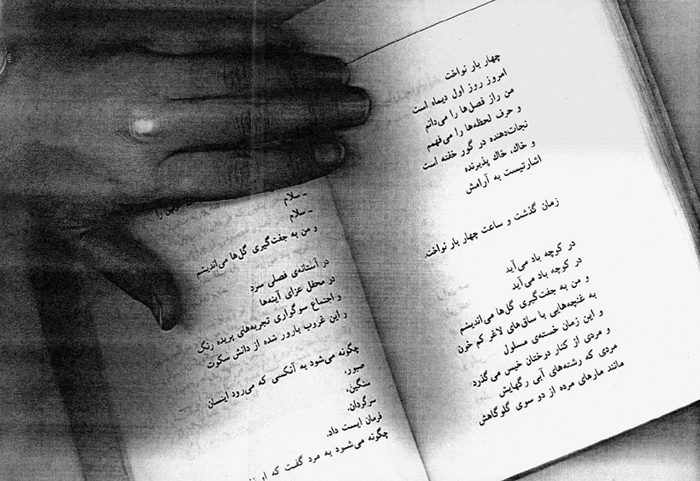 چهار بار نواخت
امروز روز اول دیماه است
من راز فصل‌ها را می‌دانم
و حرف لحظه‌ها را می‌فهمم
نجات‌دهنده در گور خفته است
و خاك، خاك پذیرنده
اشارتیست به آرامش
زمان گذشت و ساعت چهار بار نواخت.
در کوچه باد می‌آید
در کوچه باد می‌آید
و من به جفت‌گیری گل‌ها می‌اندیشم
به غنچه‌هایی با ساق‌های لاغر کم خون
و این زمان خسته‌ی مسلول
و مردی از کنار درختان خیس می‌گذرد
مردی که رشته‌های آبی رگهایش
مانند مارهای مرده از دو سوی گلوگاهش
ـ سلام
ـ سلام
و من به جفت‌گیری گل‌ها می‌اندیشم
در آستانه‌ی فصلی سرد
در محفل عزای آینه‌ها
و اجتماع سوگواری تجربه‌های پریده رنگ
و این غروب بارور شده از دانش سکوت
چگونه می‌شود به آنکسی که می‌رود اینسان
صبور،
سنگین،
سرگردان.
فرمان ایست داد.
چگونه می‌شود به مرد گفت که او